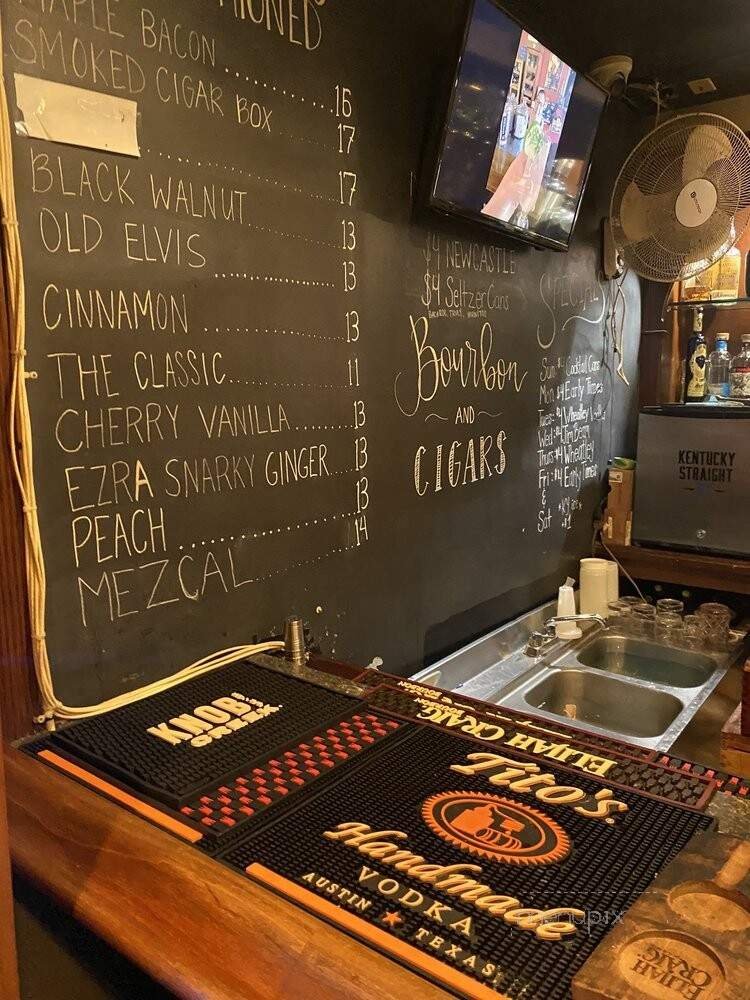 MAPLE BACON 16
SMOKED CIGAR BOX 17
17
BLACK WALNUT 13
OLD ELVIS 13
CINNAMON 13
THE CLASSIC 11
CHERRY VANILLA 13
EZRA SNARKY GINGER 13
PEACH 13
MEZCAL 14
$4 NEWCASTLE
$4 Seltzer Cans
Bourbon
AND
CIGARS
SPECIALS
Sun: $4 Cocktail Cans
Mon: $4 Early Times
Tues: $4 Wheatley
Wed: $4 Jim Beam
Thurs: $4 Wheatley
Fri: $4 Early Times
&
Sat
KENTUCKY
STRAIGHT
KNOB
CREEK
ELIJAH CRAIG
Tito's
Handmade
VODKA
AUSTIN TEXAS
ELIJAH
CRAIG
menupix